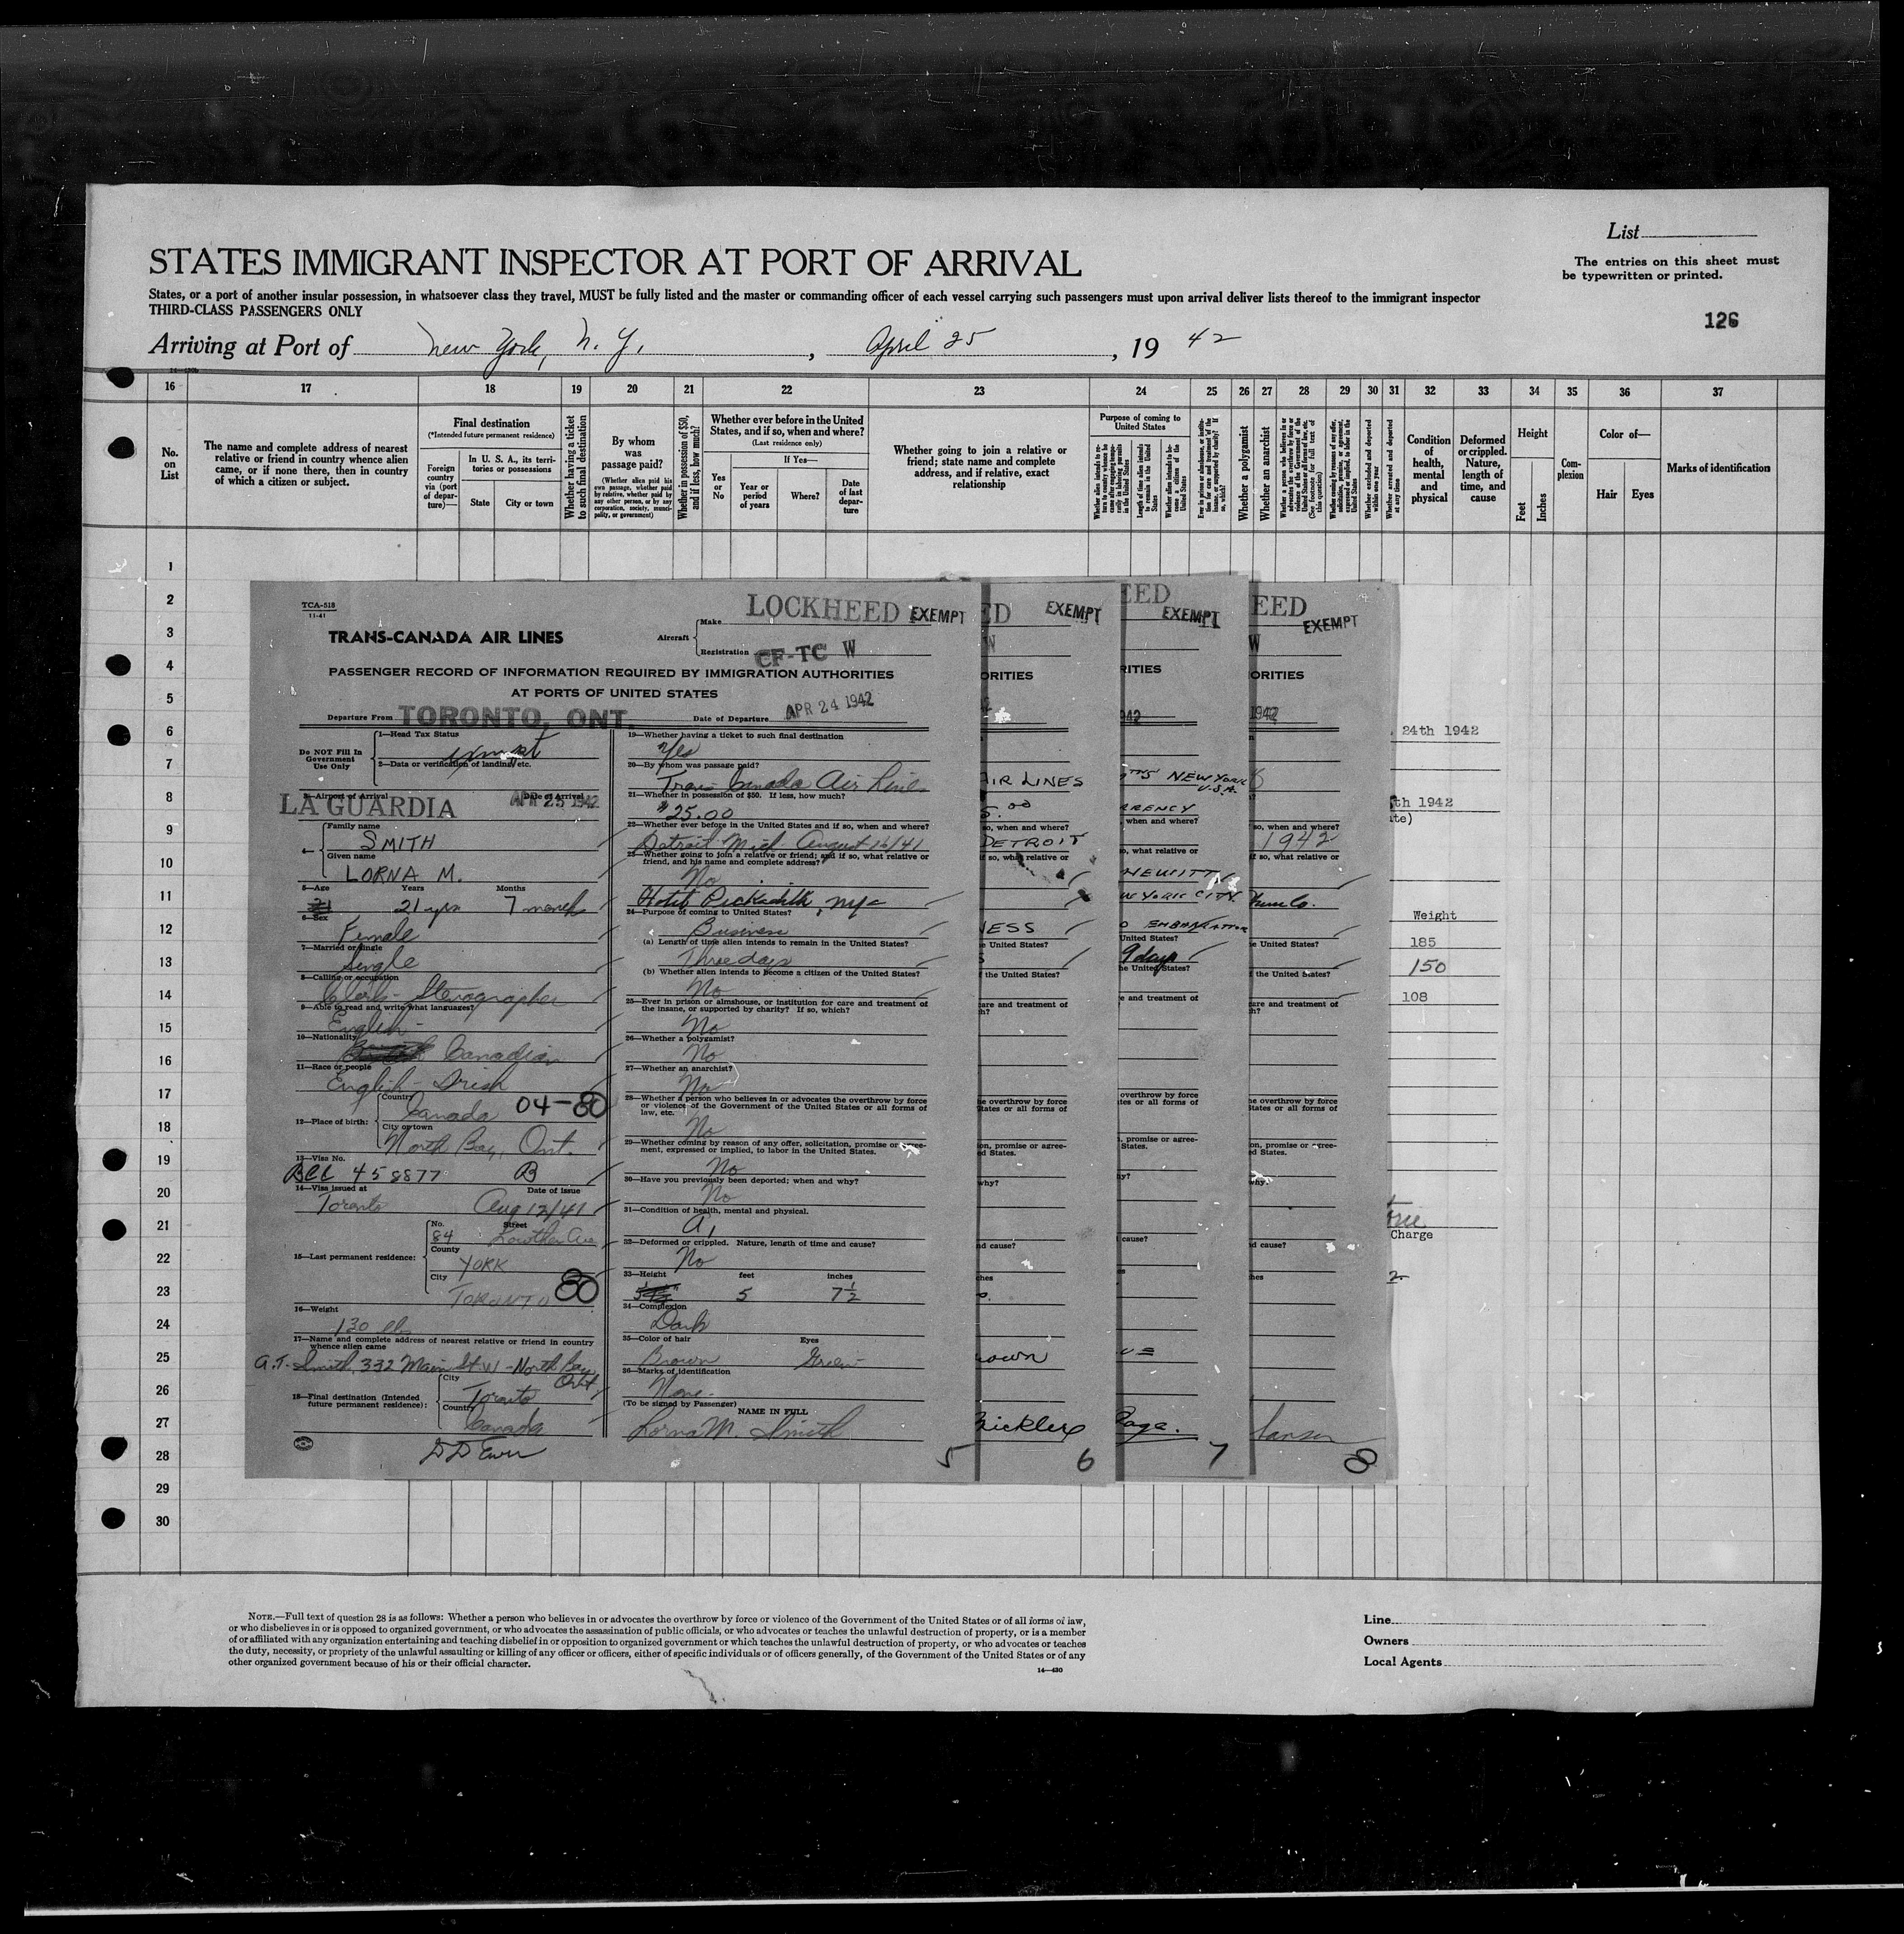 List
STATES IMMIGRANT INSPECTOR AT PORT OF ARRIVAL
The entries on this sheet must
be typewritten or printed.
States, or a port of another insular possession, in whatsoever class they travel, MUST be fully listed and the master or commanding officer of each vessel carrying such passengers must upon arrival deliver lists thereof to the immigrant inspector
THIRD-CLASS PASSENGERS ONLY
126
Arriving at Port of New York, N. Y. , April 25 , 19 42
16 17 18 19 20 21 22 23 24 25 26 27 28 29 30 31 32 33 34 35 36 37
No. on List
The name and complete address of nearest
relative or friend in country whence alien
came, or if none there, then in country
of which a citizen or subject.
Final destination
(*Intended future permanent residence)
Foreign country via (port of departure)—
In U. S. A., its territories or possessions
State
City or town
Whether having a ticket to such final destination
By whom was passage paid?
(Whether alien paid his own passage, whether paid by relative, whether paid by any other person, or by any corporation, society, municipality, or government)
Whether in possession of $50, and if less, how much?
Whether ever before in the United
States, and if so, when and where?
(Last residence only)
Yes or No
If Yes—
Year or period of years
Where?
Date of last departure
Whether going to join a relative or
friend; state name and complete
address, and if relative, exact
relationship
Purpose of coming to
United States
Whether a polygamist
Whether an anarchist
Condition of health, mental and physical
Deformed or crippled. Nature, length of time, and cause
Height
Feet
Inches
Complexion
Color of—
Hair
Eyes
Marks of identification
1
2
3
4
5
6
7
8
9
10
11
12
13
14
15
16
17
18
19
20
21
22
23
24
25
26
27
28
29
30
TCA-518
11-41
TRANS-CANADA AIR LINES
Aircraft
Make LOCKHEED EXEMPT
Registration CF-TC W
PASSENGER RECORD OF INFORMATION REQUIRED BY IMMIGRATION AUTHORITIES
AT PORTS OF UNITED STATES
Departure From TORONTO, ONT. Date of Departure APR 24 1942
Do NOT Fill In
Government
Use Only
1—Head Tax Status
exempt
2—Data or verification of landing, etc.
3—Airport of Arrival Date of Arrival
LA GUARDIA APR 25 1942
4—
Family name
SMITH
Given name
LORNA M.
5—Age Years Months
21 21 yrs 7 months
6—Sex
Female
7—Married or Single
Single
8—Calling or occupation
Clerk - Stenographer
9—Able to read and write what languages?
English -
10—Nationality
Canadian
11—Race or people
English - Irish
12—Place of birth:
Country
Canada 04-80
City or town
North Bay, Ont.
13—Visa No.
BCC 458877 B
14—Visa issued at Date of issue
Toronto Aug 12/41
15—Last permanent residence:
No. Street
84 Lowther Ave
County
YORK
City
TORONTO 80
16—Weight
130 lbs
17—Name and complete address of nearest relative or friend in country
whence alien came
A.T. Smith, 332 Main St W - North Bay
Ont
18—Final destination (Intended
future permanent residence):
City
Toronto
Country
Canada
19—Whether having a ticket to such final destination
Yes
20—By whom was passage paid?
Trans Canada Air Lines
21—Whether in possession of $50. If less, how much?
$25.00
22—Whether ever before in the United States and if so, when and where?
Detroit Mich August 16/41
23—Whether going to join a relative or friend; and if so, what relative or
friend, and his name and complete address?
No
Hotel Pickadilli, NYC
24—Purpose of coming to United States?
Business
(a) Length of time alien intends to remain in the United States?
Three days
(b) Whether alien intends to become a citizen of the United States?
No
25—Ever in prison or almshouse, or institution for care and treatment of
the insane, or supported by charity? If so, which?
No
26—Whether a polygamist?
No
27—Whether an anarchist?
No
28—Whether a person who believes in or advocates the overthrow by force
or violence of the Government of the United States or all forms of
law, etc.
No
29—Whether coming by reason of any offer, solicitation, promise or agree-
ment, expressed or implied, to labor in the United States.
No
30—Have you previously been deported; when and why?
No
31—Condition of health, mental and physical.
A1
32—Deformed or crippled. Nature, length of time and cause?
No
33—Height feet inches
5 7½
34—Complexion
Dark
35—Color of hair Eyes
Brown Green
36—Marks of identification
None.
(To be signed by Passenger)
NAME IN FULL
Lorna M. Smith
5
ED EXEMPT
W
ORITIES
AIR LINES
so, when and where?
DETROIT
if so, what relative or
NESS
e United States?
the United States?
care and treatment of
h?
he overthrow by force
States or all forms of
on, promise or agree-
ed States.
why?
nd cause?
ches
own
6
EED
EXEMPT
RITIES
942
NEW YORK
U.S.A.
when and where?
o, what relative or
HEWITT
W YORK CITY
United States?
9 days
he United States?
e and treatment of
overthrow by force
tes or all forms of
, promise or agree-
States.
hy?
cause?
Page.
7
EED
EXEMPT
W
ORITIES
1942
so, when and where?
1942
if so, what relative or
e United States?
the United States?
care and treatment of
h?
he overthrow by force
States or all forms of
on, promise or agree-
ed States.
why?
nd cause?
hes
8
24th 1942
th 1942
te)
Weight
185
150
108
Charge
NOTE.—Full text of question 28 is as follows: Whether a person who believes in or advocates the overthrow by force or violence of the Government of the United States or of all forms of law,
or who disbelieves in or is opposed to organized government, or who advocates the assassination of public officials, or who advocates or teaches the unlawful destruction of property, or is a member
of or affiliated with any organization entertaining and teaching disbelief in or opposition to organized government or which teaches the unlawful destruction of property, or who advocates or teaches
the duty, necessity, or propriety of the unlawful assaulting or killing of any officer or officers, either of specific individuals or of officers generally, of the Government of the United States or of any
other organized government because of his or their official character.
14—430
Line
Owners
Local Agents